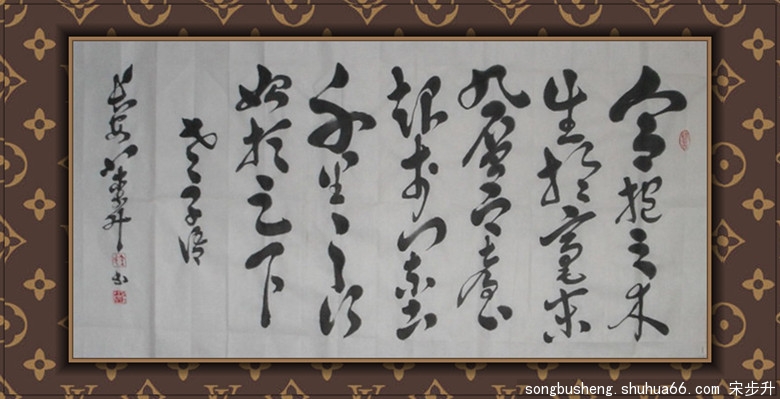 合抱之木
生於毫末
九層之臺
起於累土
千里之行
始於足下
老子語
長安宋步升書
songbusheng.shuhua66.com 宋步升